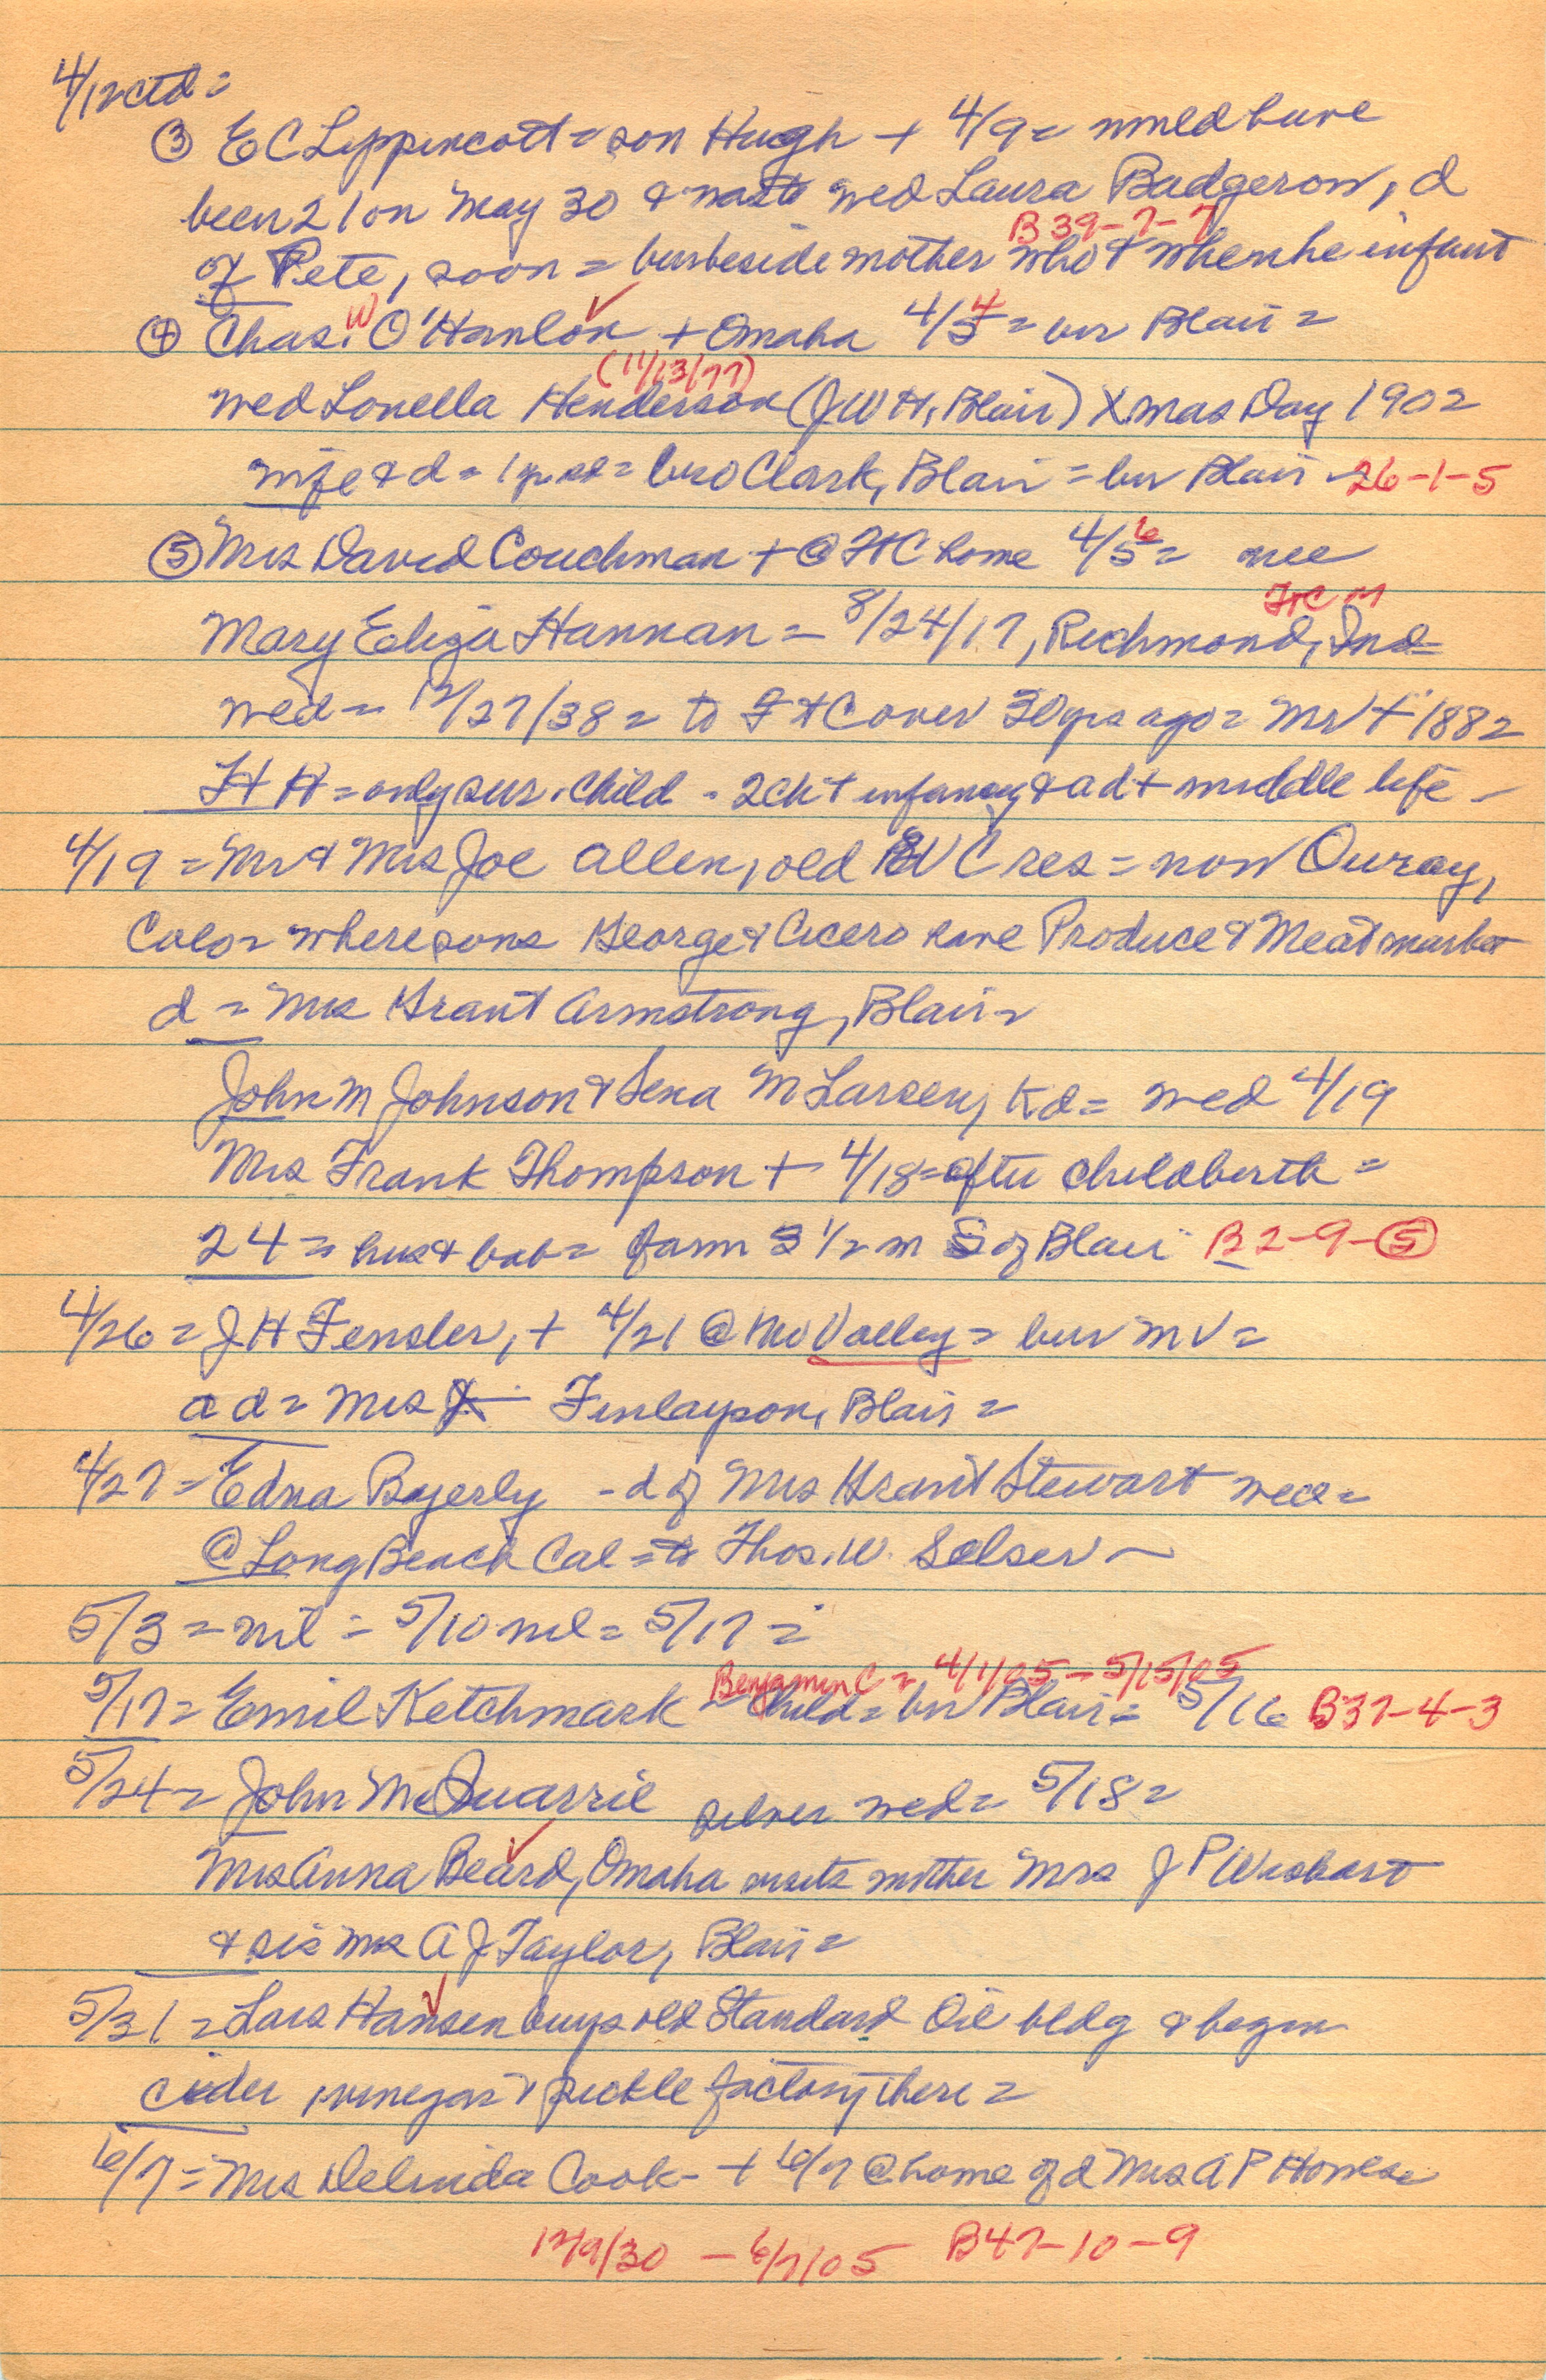 4/12 ctd =
③ E C Lippincott = son Hugh + 4/9 = would have
been 21 on May 30 & was to wed Laura Badgerow, d
B 39-7-7
of Pete, soon = bur beside mother who + when he infant
④ Chas. W O'Hanlon + Omaha 4/4 = bur Blair =
(11/13/77)
wed Louella Henderson (J W H, Blair) Xmas Day 1902
wife & d = 1 yr old = bro Clark, Blair = bur Blair - 26-1-5
⑤ Mrs David Couchman + @ Ft C home 4/6 = nee
Ft C
Mary Eliza Hannan = 8/24/17, Richmond, Ind =
wed = 12/27/38 = to Ft C over 30 yrs ago = Mr + 1882
= only sur. child - 2 ch + infancy & a d + middle life -
4/19 = Mr & Mrs Joe Allen, old res = now Ouray,
Colo = where sons George & Cicero have Produce & Meat market
d = Mrs Grant Armstrong, Blair =
John M Johnson & Sena M Larsen, Kd = wed 4/19
Mrs Frank Thompson + 4/18 = after childbirth =
24 = hus & bab = farm 3 1/2 m S of Blair B 2-9-⑤
4/26 = J H Fensler, + 4/21 @ Mo Valley = bur M V =
a d = Mrs Finlayson, Blair =
4/27 = Edna Byerly - d of Mrs Grant Stewart wed =
@ Long Beach Cal = to Thos. W. Selser ~
5/3 = nil = 5/10 nil = 5/17 =
Benjamin C = 4/1/05 - 5/15/05
5/17 = Emil Ketchmark - child = bur Blair = 5/16 B37-4-3
5/24 = John McQuarrie silver wed = 5/18 =
Mrs Anna Beard, Omaha visits mother Mrs J P Wishart
& sis Mrs A J Taylor, Blair =
5/31 = Lars Hansen buys old Standard Oil bldg & begin
cider, vinegar & pickle factory there =
6/7 = Mrs Delinda Cook - + 6/7 @ home of d Mrs A P Howes =
12/9/30 - 6/7/05 B47-10-9